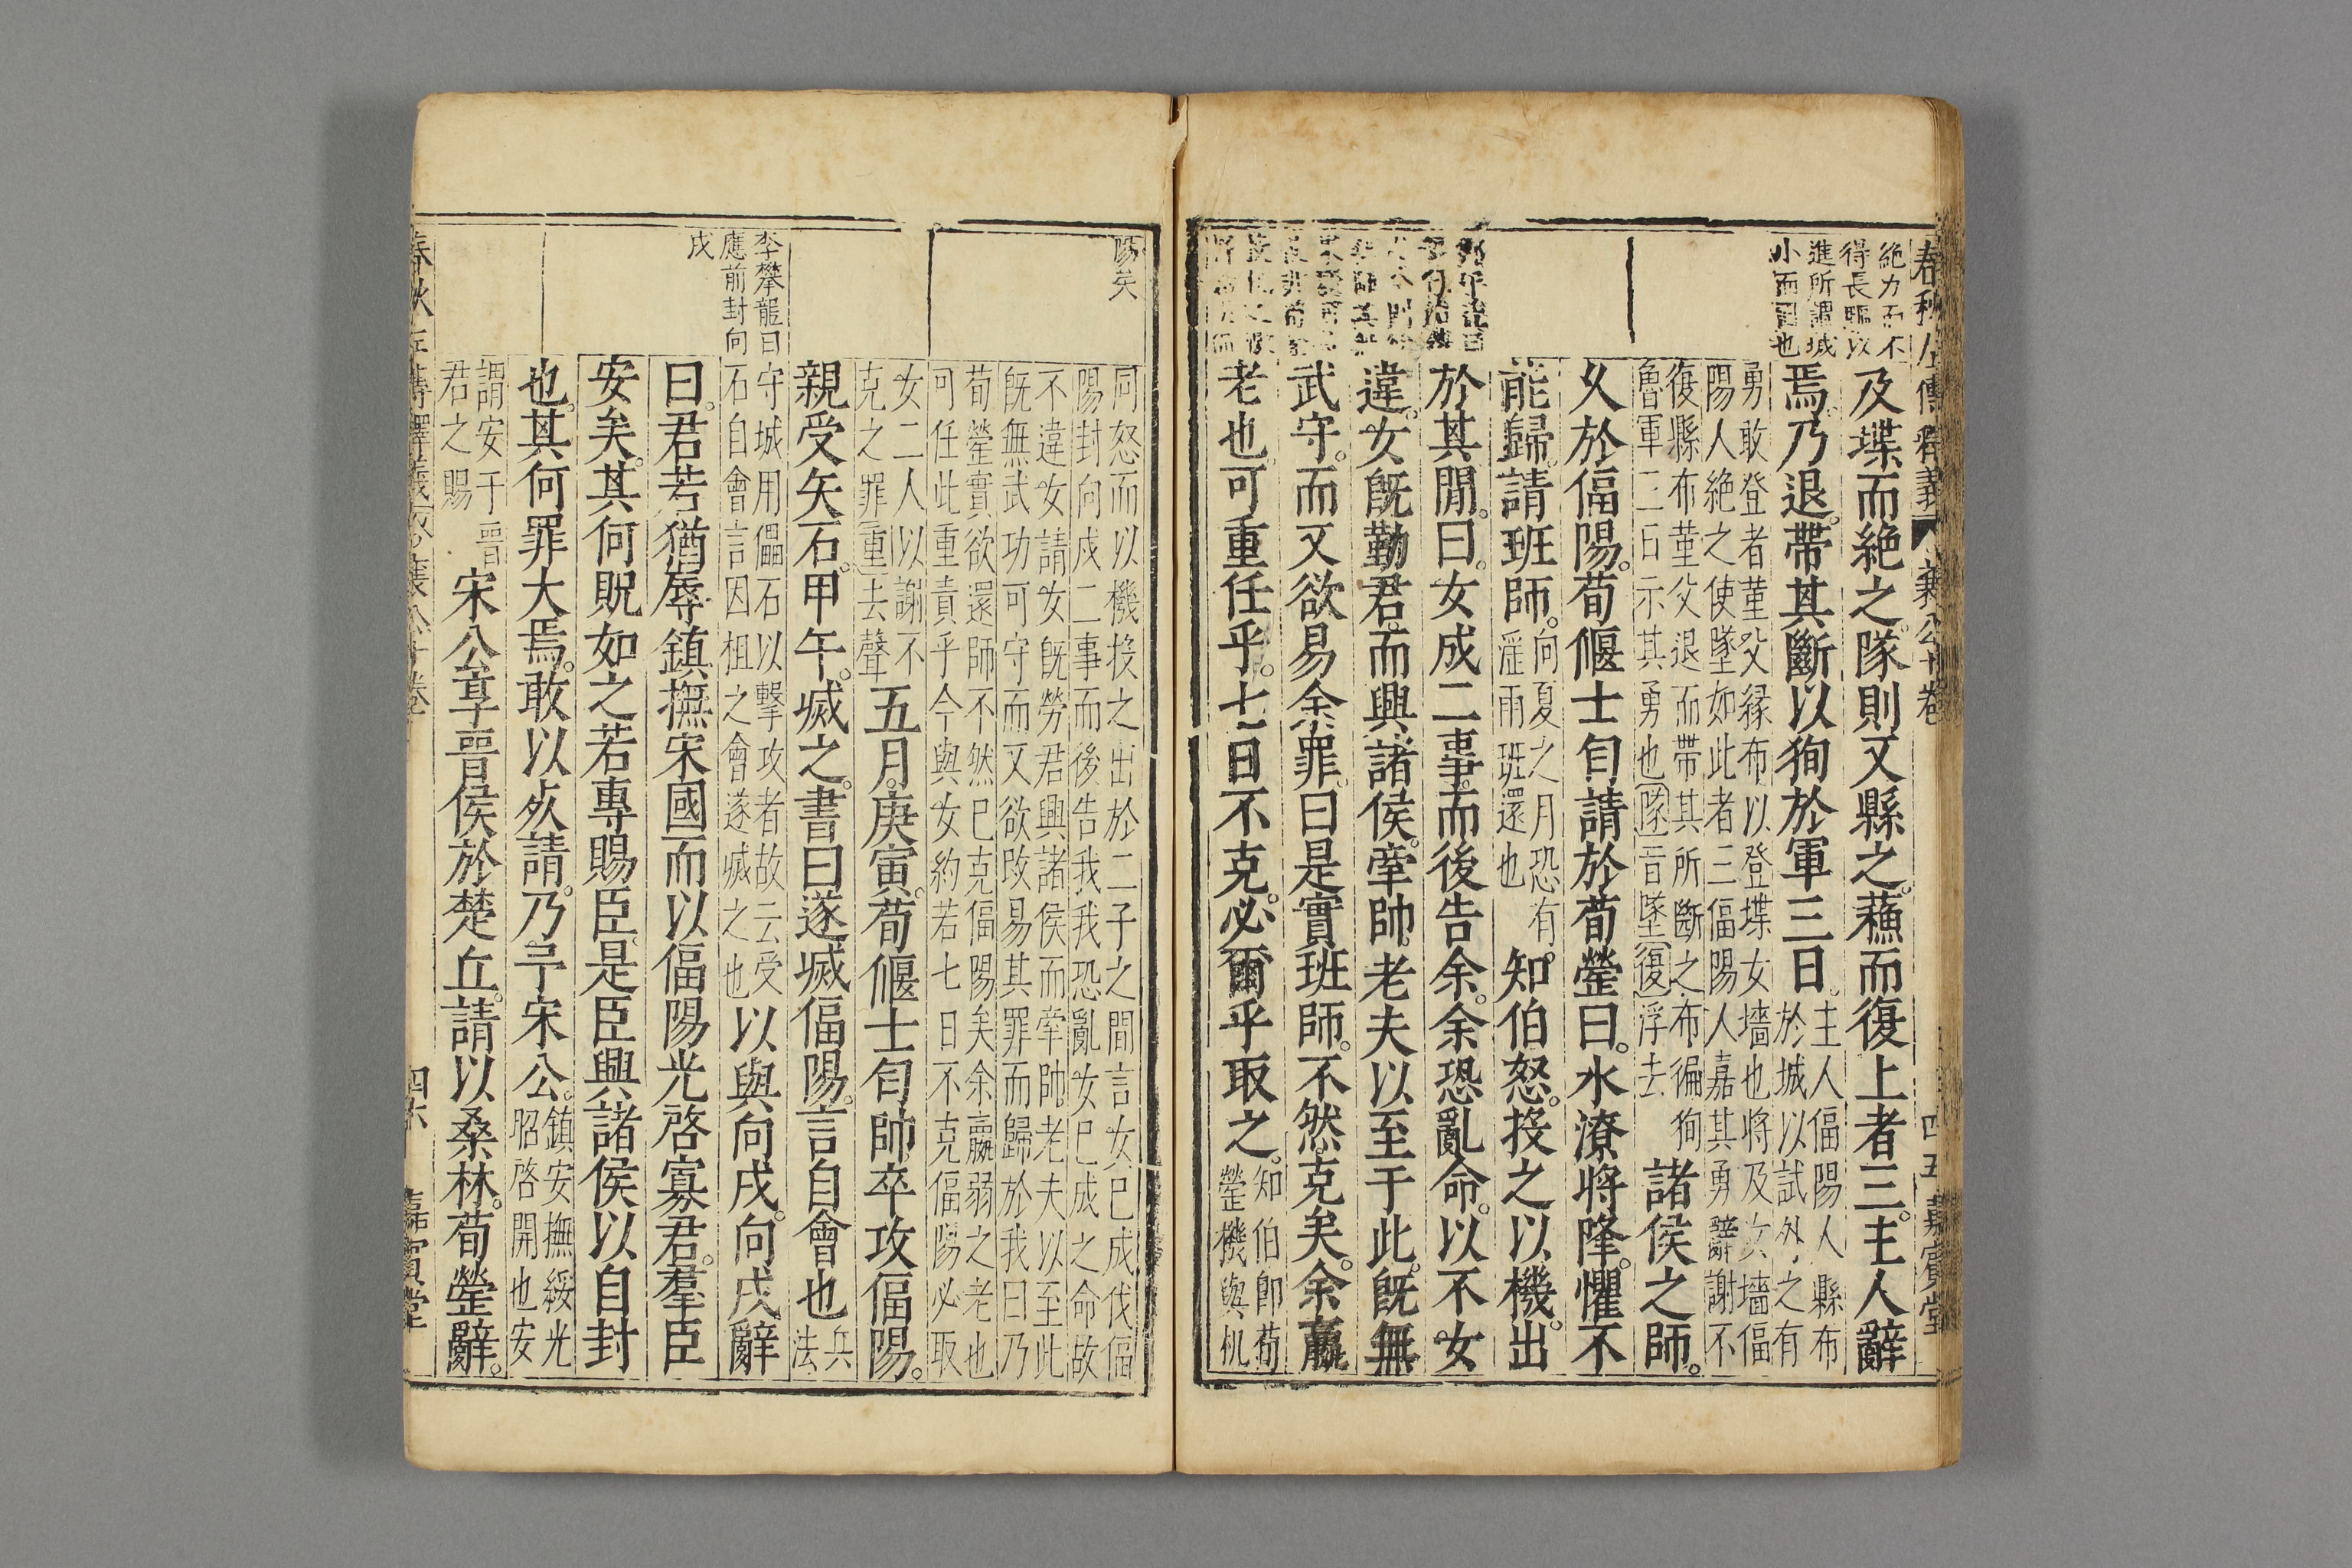 春秋左傳釋義 襄公十卷 四五 嘉賓堂
絶力而不
得長驅以
進所謂城
小而固也
及堞而絶之。隊則又縣之。蘓而復上者三。主人辭
焉。乃退。帶其斷以狥於軍三日。
主人偪陽人縣布
於城以試外之有
勇敢登者菫父縁布以登堞女墻也將及女墻偪
陽人絶之使墜如此者三偪陽人嘉其勇辭謝不
復縣布菫父退而帶其所斷之布徧狥
魯軍三日示其勇也隊音墜復浮去
諸侯之師。
久於偪陽。荀偃士匄請於荀罃曰。水潦將降。懼不
能歸。請班師。
向夏之月恐有
滛雨班還也
知伯怒。投之以機。出
於其閒。曰。女成二事。而後告余。余恐亂命。以不女
違。女旣勤君。而興諸侯。牽帥老夫以至于此。旣無
武守。而又欲易余罪。曰是實班師。不然。克矣。余羸
老也。可重任乎。七日不克。必爾乎取之。
知伯卽荀
罃機與机
陽矣
同怒而以機投之出於二子之間言女巳成伐偪
陽封向戌二事而後告我我恐亂女巳成之命故
不違女請女旣勞君興諸侯而牽帥老夫以至此
旣無武功可守而又欲攺易其罪而歸於我曰乃
荀罃實欲還師不然巳克偪陽矣余羸弱之老也
可任此重責乎今與女約若七日不克偪陽必取
女二人以謝不
克之罪重去聲
五月。庚寅。荀偃士匄帥卒攻偪陽。
親受矢石。甲午。滅之。書曰遂滅偪陽。言自會也
兵
法
李攀龍曰
應前封向
戌
守城用儡石以擊攻者故云受
石自會言因柤之會遂滅之也
以與向戌。向戌辭
曰。君若猶辱鎮撫宋國而以偪陽光啓寡君。羣臣
安矣。其何貺如之若專賜臣。是臣興諸侯以自封
也。其何罪大焉。敢以死請。乃予宋公。
鎮安撫綏光
昭啓開也安
謂安于晉
君之賜
宋公享晉侯於楚丘。請以桑林。荀罃辭。
春秋左傳釋義 襄公十卷 四六 嘉賓堂